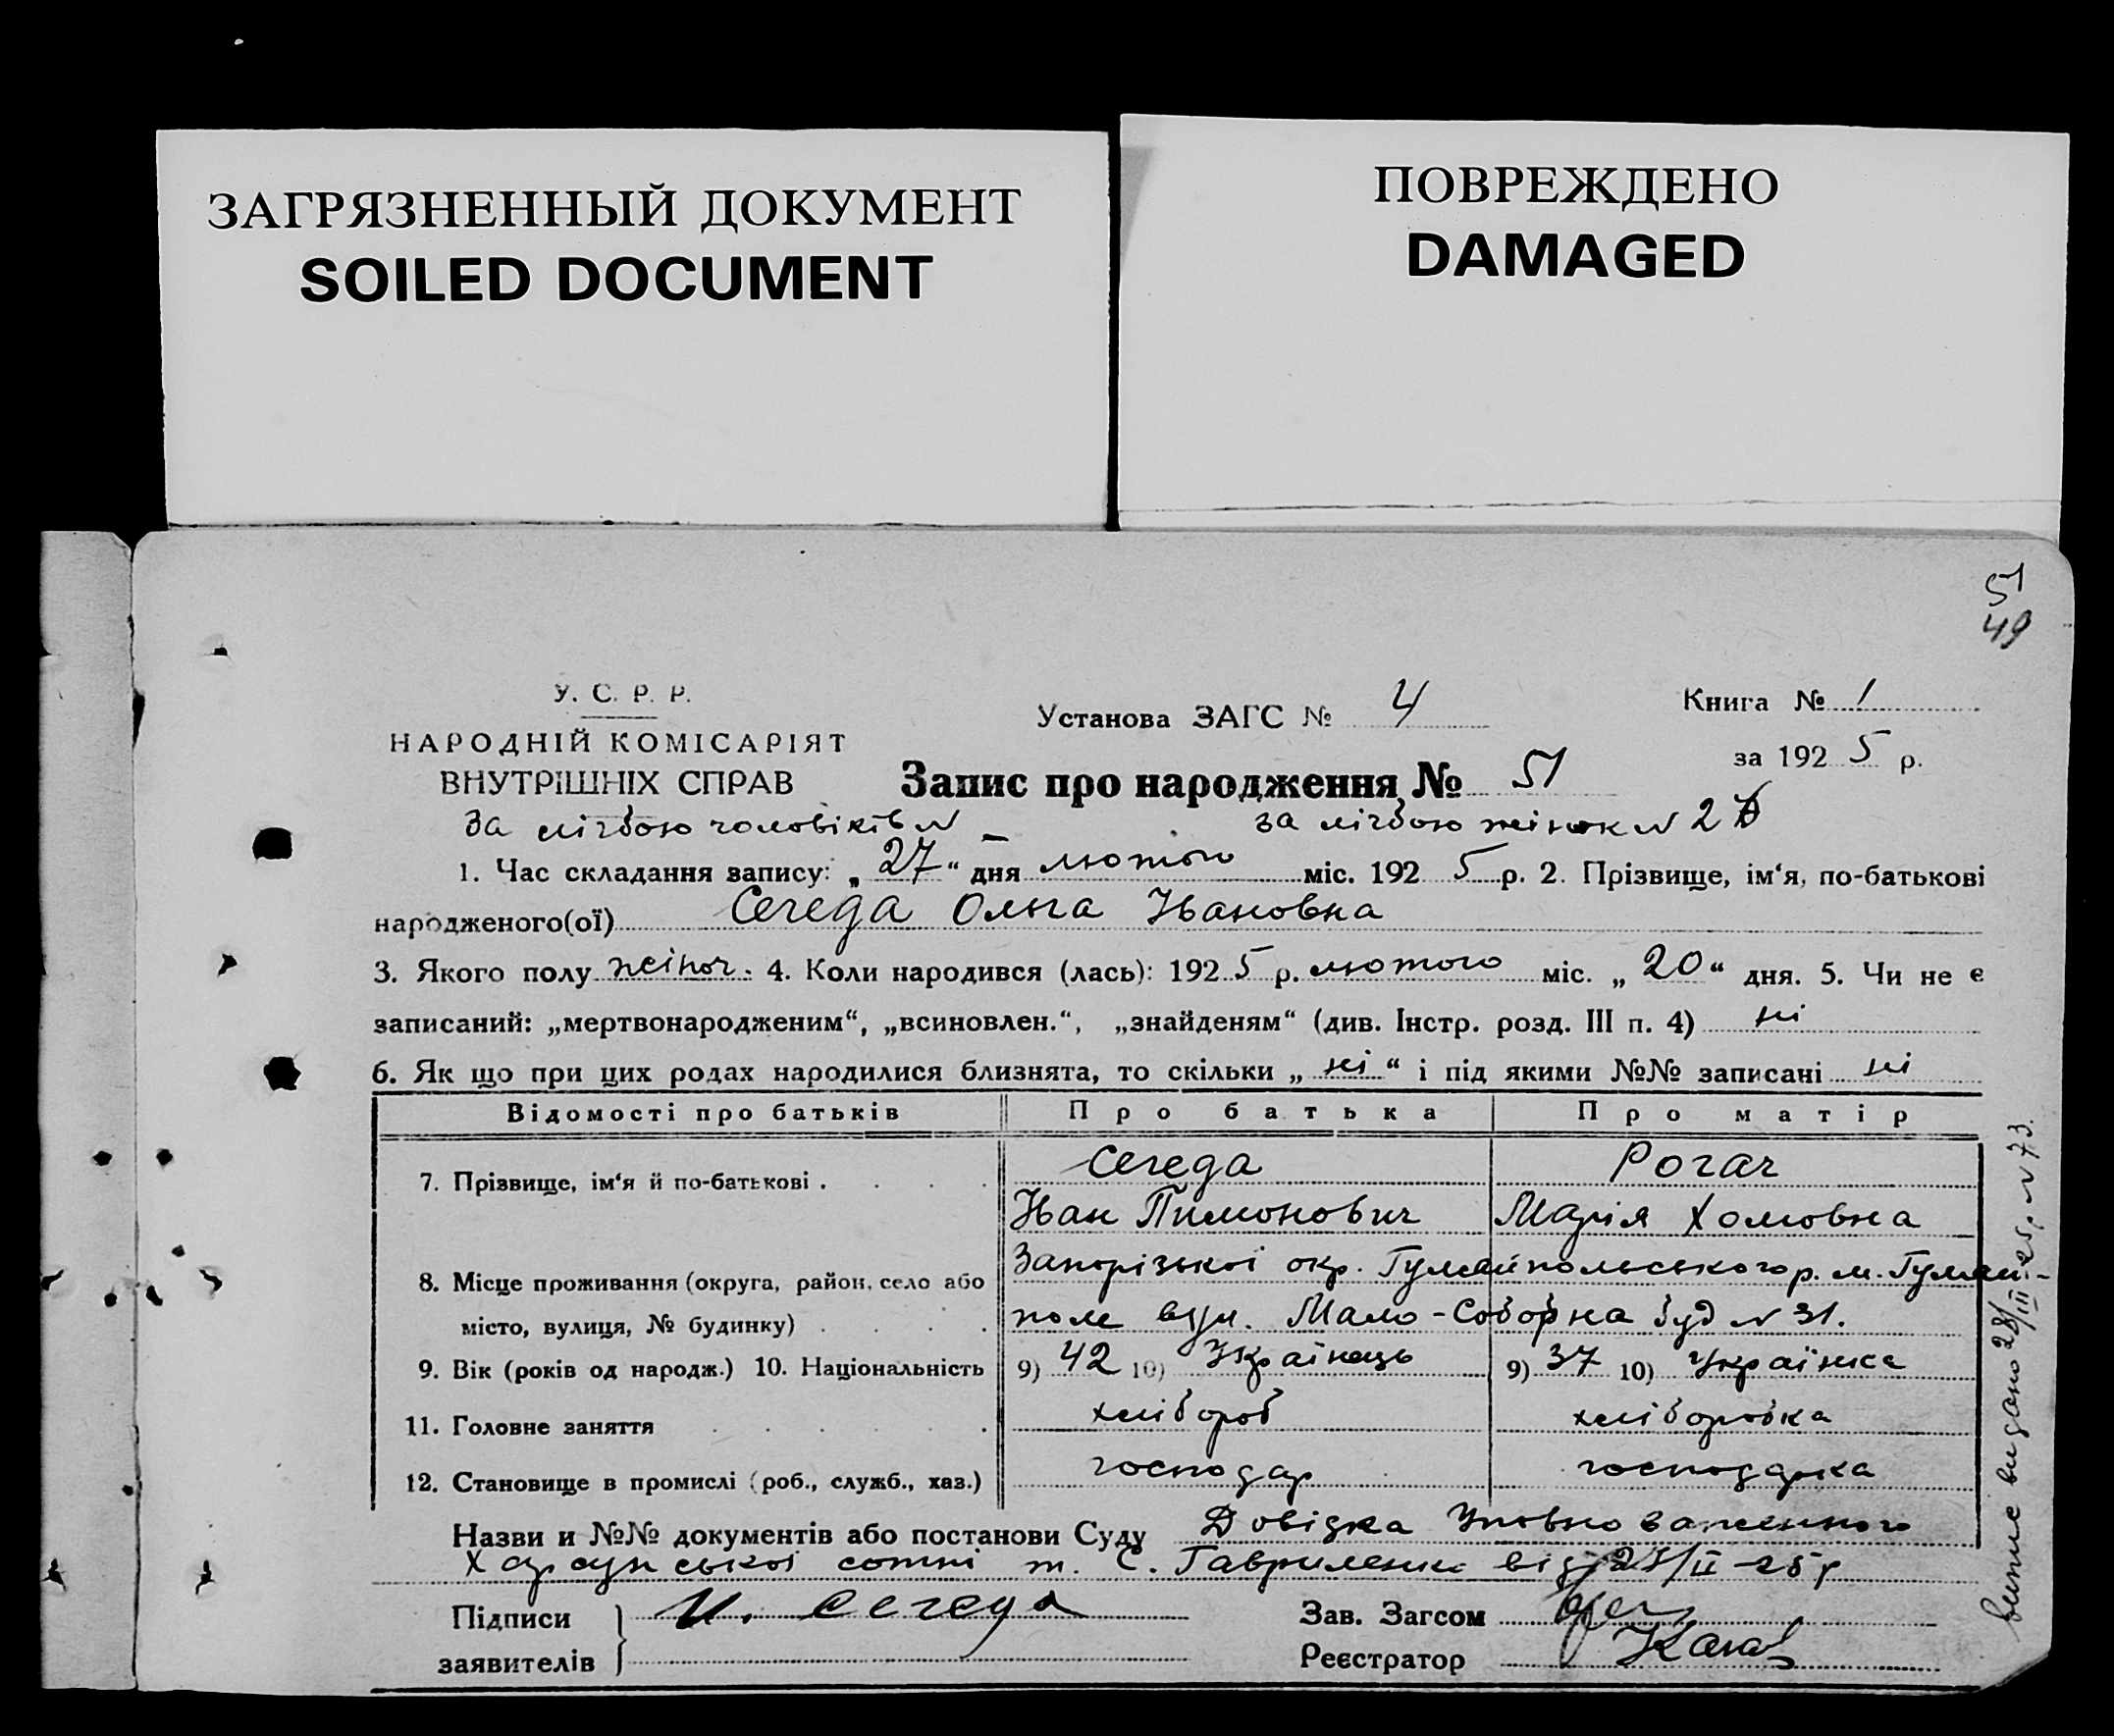 ЗАГРЯЗНЕННЫЙ ДОКУМЕНТ
SOILED DOCUMENT
ПОВРЕЖДЕНО
DAMAGED
51
49
У. С. Р. Р.
НАРОДНІЙ КОМІСАРІЯТ
ВНУТРІШНІХ СПРАВ
Установа ЗАГС № 4
Книга № 1
за 1925 р.
Запис про народження № 51
За лічбою чоловіків N – за лічбою жінок N 2
1. Час складання запису: „27“ дня лютого міс. 1925 р. 2. Прізвище, ім‘я, по-батькові
народженого(ої) Сегеда Ольга Івановна
3. Якого полу жіноч. 4. Коли народився (лась): 1925 р. лютого міс. „20“ дня. 5. Чи не є
записаний: „мертвонародженим“, „всиновлен.“, „знайденям“ (див. Інстр. розд. III п. 4) ні
6. Як що при цих родах народилися близнята, то скільки „ні“ і під якими №№ записані ні
Відомості про батьків Про батька Про матір
7. Прізвище, ім‘я й по-батькові . Сегеда Рогач
Іван Пимонович Марія Хомовна
8. Місце проживання (округа, район, село або Запорізької окр. Гуляйпольського р. м. Гуляй-
місто, вулиця, № будинку) поле вул. Мало-Соборна буд N 31.
9. Вік (років од народж.) 10. Національність 9) 42 10) Українець 9) 37 10) Українка
11. Головне заняття хлібороб хліборобка
12. Становище в промислі (роб., служб., хаз.) господар господарка
Назви и №№ документів або постанови Суду Довідка Уповноваженного
сотні т. С. Гавриленка від /II 25 р
Підписи И. Сегеда Зав. Загсом
заявителів Реєстратор
видано 28/III 25 р N 73.